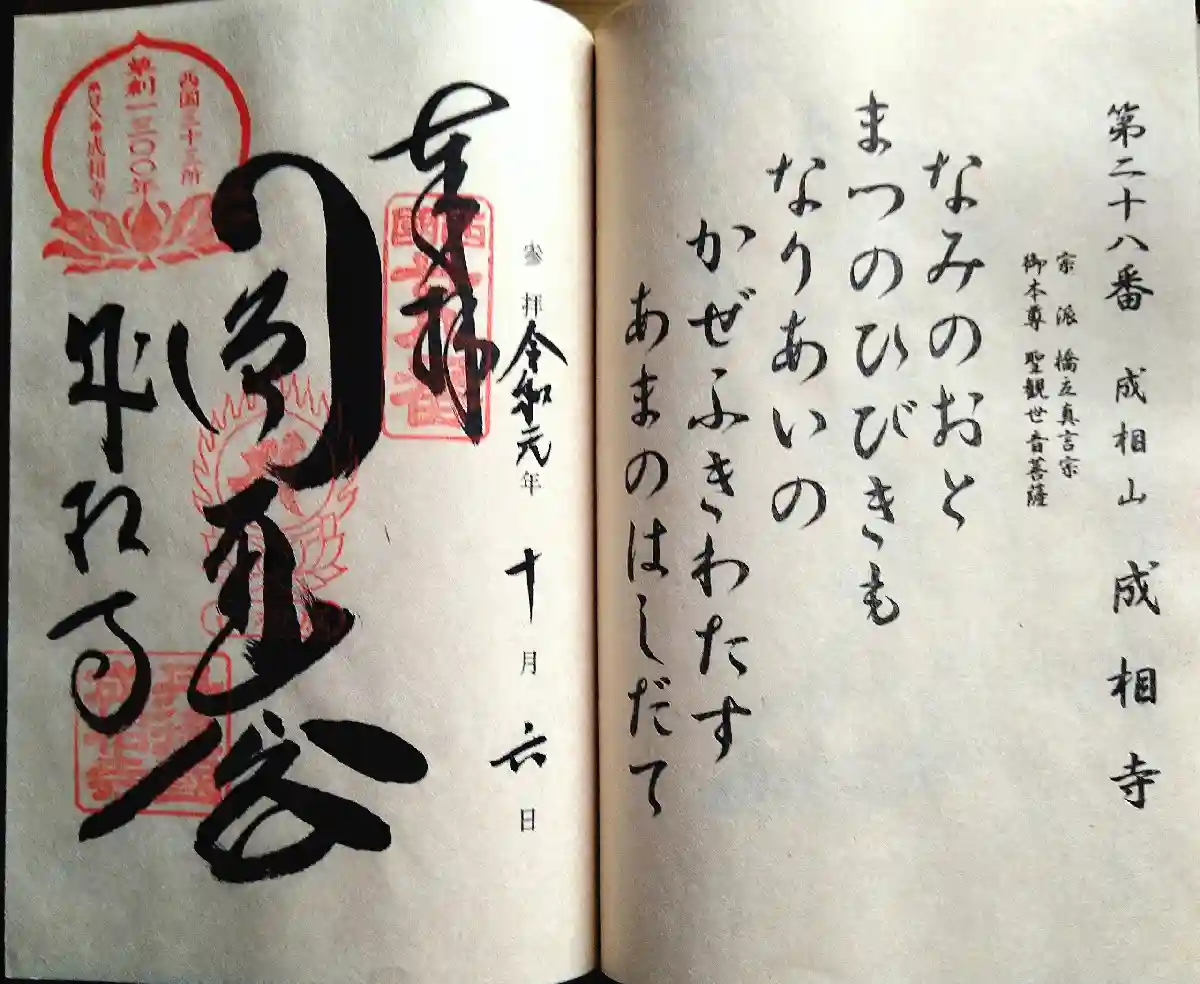 第二十八番 成相山 成相寺
宗派 橋立真言宗
御本尊 聖観世音菩薩
なみのおと
まつのひびきも
なりあいの
かぜふきわたす
あまのはしだて
参拝 令和元年 十月 六日
奉拝
成相寺
西国三十三所
草創一三〇〇年
第廿八番 成相寺